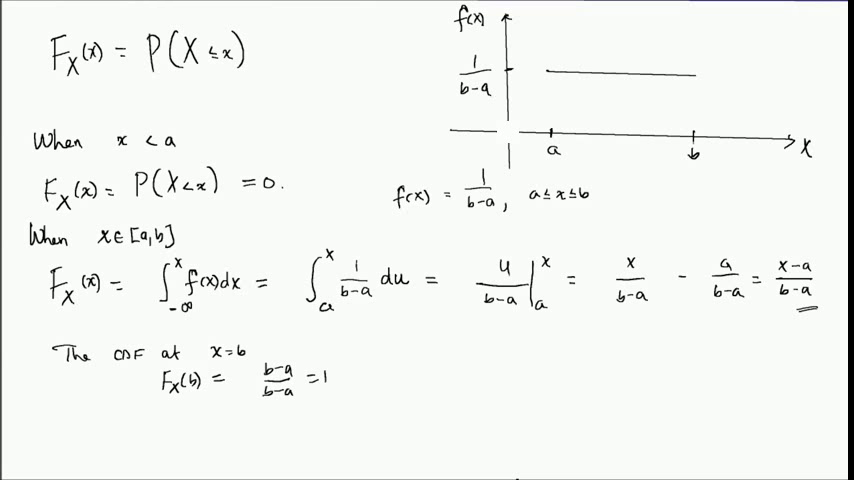 F_X(x) = P(X ≤ x)
f(x)
1/(b-a)
a
b
x
When x < a
F_X(x) = P(X < x) = 0.
f(x) = 1/(b-a), a ≤ x ≤ b
When x ∈ [a,b]
F_X(x) = ∫_{-∞}^{x} f(x)dx = ∫_{a}^{x} 1/(b-a) du = u/(b-a) |_{a}^{x} = x/(b-a) - a/(b-a) = (x-a)/(b-a)
The CDF at x=b
F_X(b) = (b-a)/(b-a) = 1